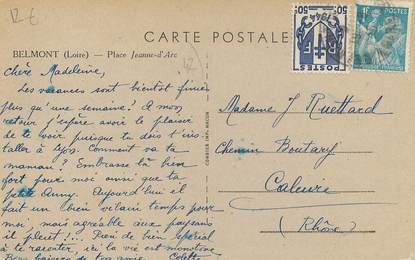 12 €
CARTE POSTALE
BELMONT (Loire) — Place Jeanne-d'Arc
50c
50c
POSTES
1F
1944
42
Chère Madeleine,
Les vacances sont bientôt finies
plus qu'une semaine! A mon
retour j'espère avoir le plaisir
de te voir puisque tu dois t'ins
taller à Lyon. Comment va ta
maman? Embrasse là bien
fort pour moi ainsi que ta
petite Anny. Aujourd'hui il
fait un bien vilain temps pour
moi, mais agréable aux paysans
il pleut!... Rien de bien spécial
à te raconter, ici la vie est monotone
Bons baisers de ton amie Colette
Madame J. Ruettard
Chemin Boutary
Caluire
(Rhône)